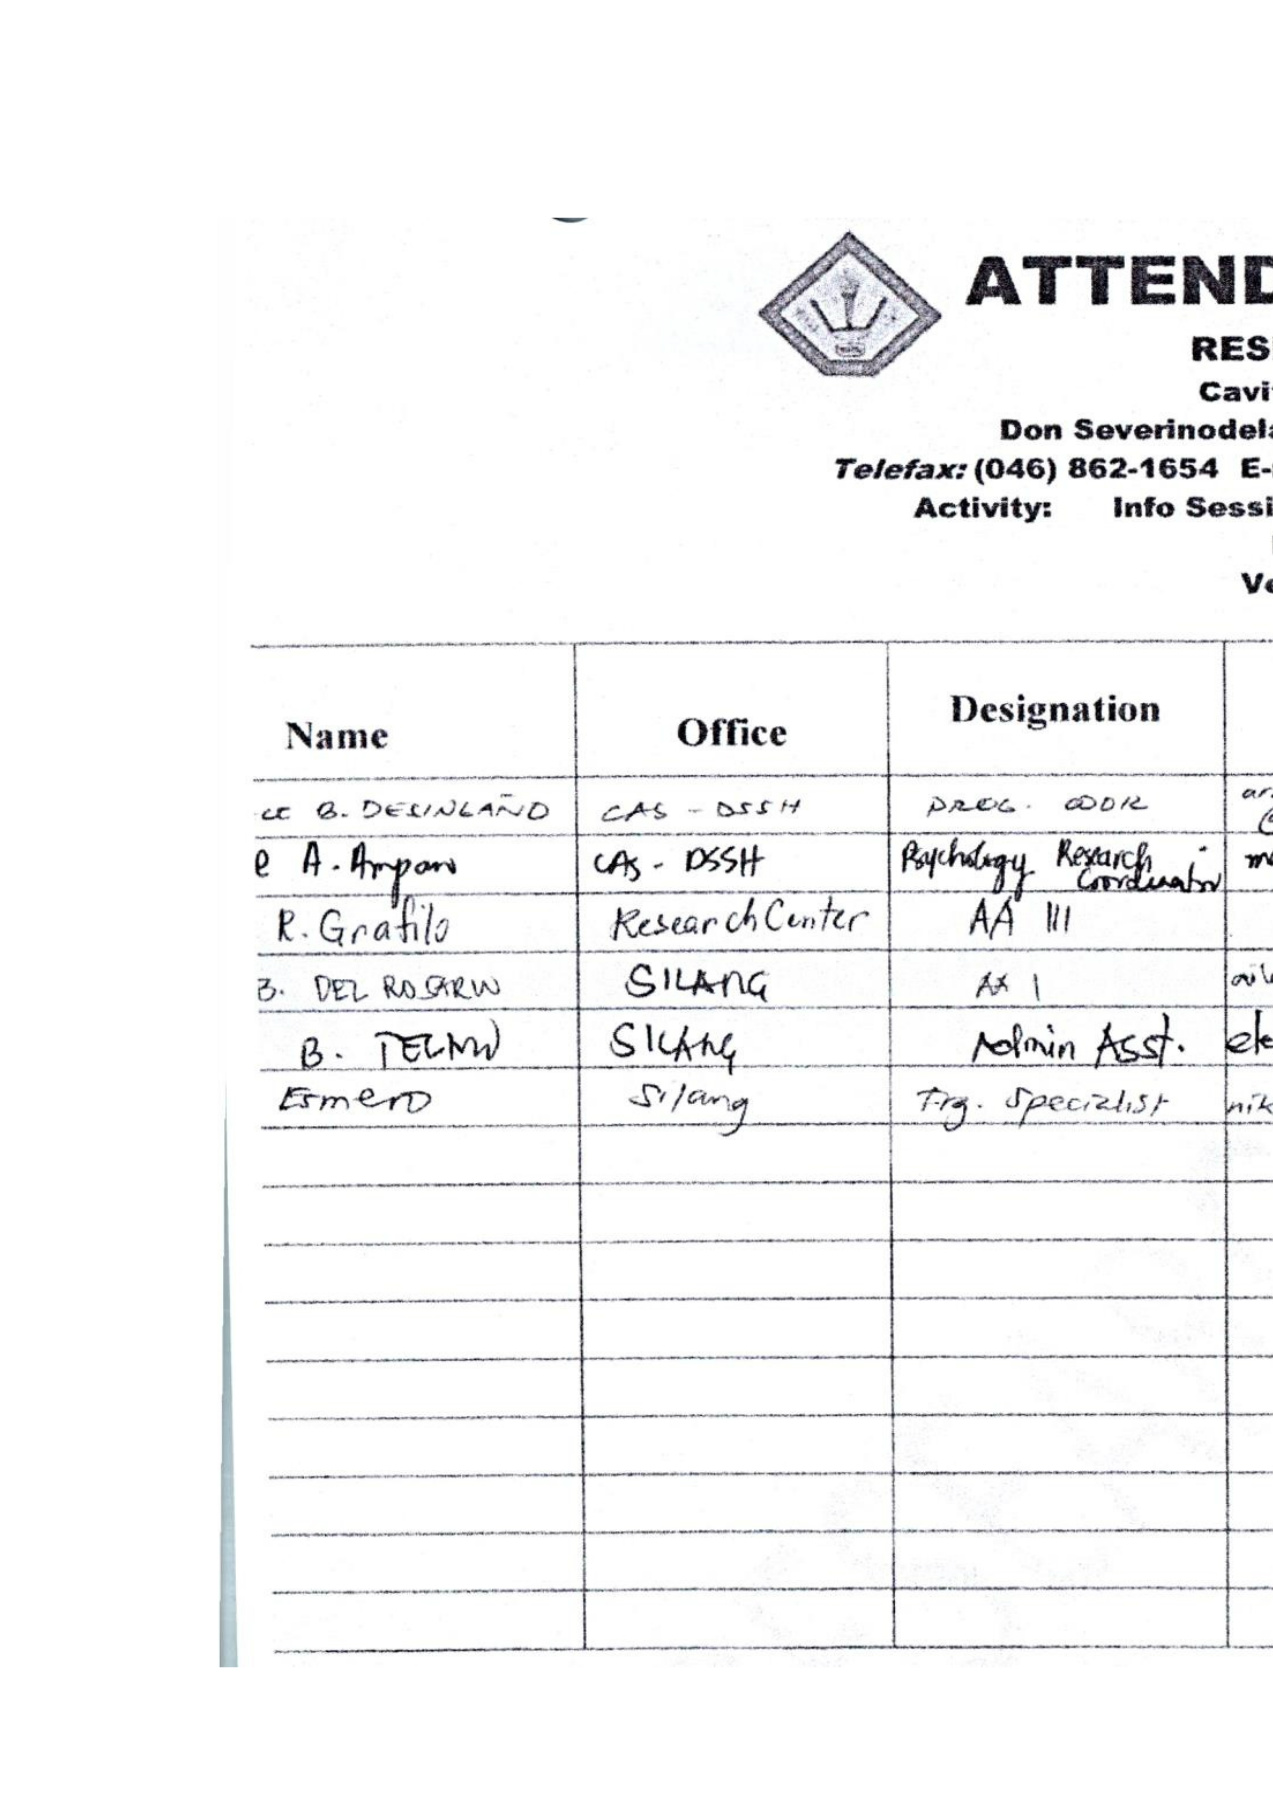 ATTEND
RES
Cavi
Don Severinodela
Telefax: (046) 862-1654 E-
Activity: Info Sessi
Ve
Name Office Designation
CE B. DESINGAÑO CAS - DSSH PROG. COOR ar
e A. Amparo CAS - DSSH Psychology Research Coordinator ma
R. Grafilo Research Center AA III
B. DEL ROSARIO SILANG AA I ail
B. TELMO SILANG Admin Asst. ele
Esmero Silang Trg. Specialist nik